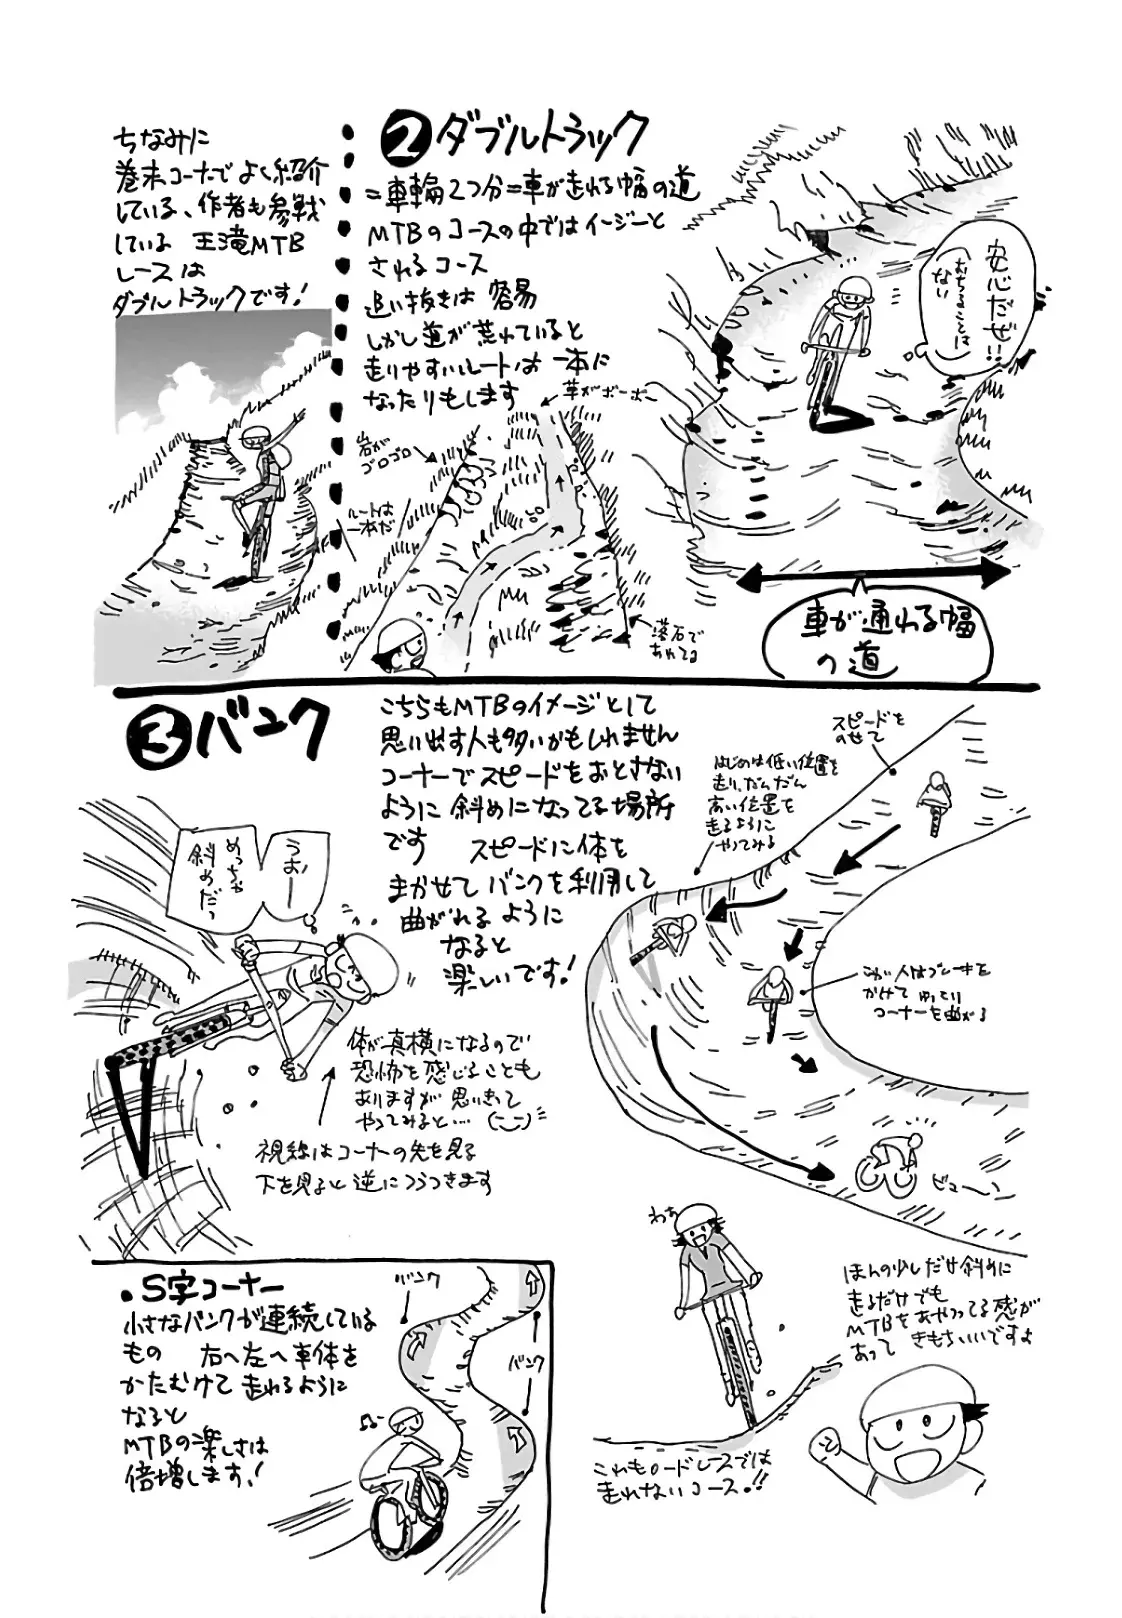 ②ダブルトラック
=車輪2つ分=車が走れる幅の道
MTBのコースの中ではイージーと
されるコース
追い抜きは容易
しかし道が荒れていると
走りやすいルートは一本に
なったりもします
安心だぜ!!
おちることは
ない
車が通れる幅
の道
草がボーボー
岩が
ゴロゴロ
ルートは
一本だ
落石で
あれてる
ちなみに
巻末コーナーでよく紹介
している、作者も参戦
している 王滝MTB
レースは
ダブルトラックです!
③バンク
こちらもMTBのイメージとして
思い出す人も多いかもしれません
コーナーでスピードをおとさない
ように斜めになってる場所
です スピードに体を
まかせてバンクを利用して
曲がれるように
なると
楽しいです!
うおー
めっちゃ
斜めだっ
体が真横になるので
恐怖を感じることも
ありますが思いきって
やってみると…
視線はコーナーの先を見る
下を見ると逆にふらつきます
スピードを
のせて
はじめは低い位置を
走り、だんだん
高い位置を
走るように
やってみる
こわい人はブレーキを
かけてゆっくり
コーナーを曲がる
ビューン
わぁ
ほんの少しだけ斜めに
走るだけでも
MTBをあやつってる感が
あって きもちいいですよ
これもロードレースでは
走れないコース!!
・S字コーナー
小さなバンクが連続している
もの 右へ左へ車体を
かたむけて走れるように
なると
MTBの楽しさは
倍増します!
バンク
バンク